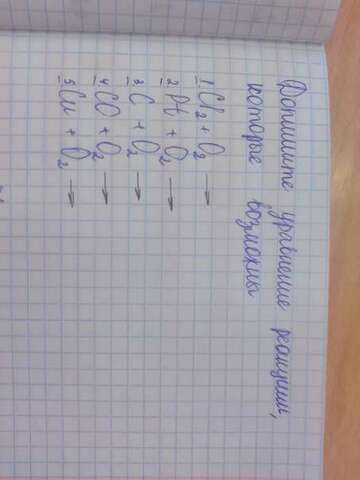 Допишите уравнение реакции,
которые возможны
1 Cl₂ + O₂ →
2 Pt + O₂ →
3 C + O₂ →
4 CO + O₂ →
5 Cu + O₂ →